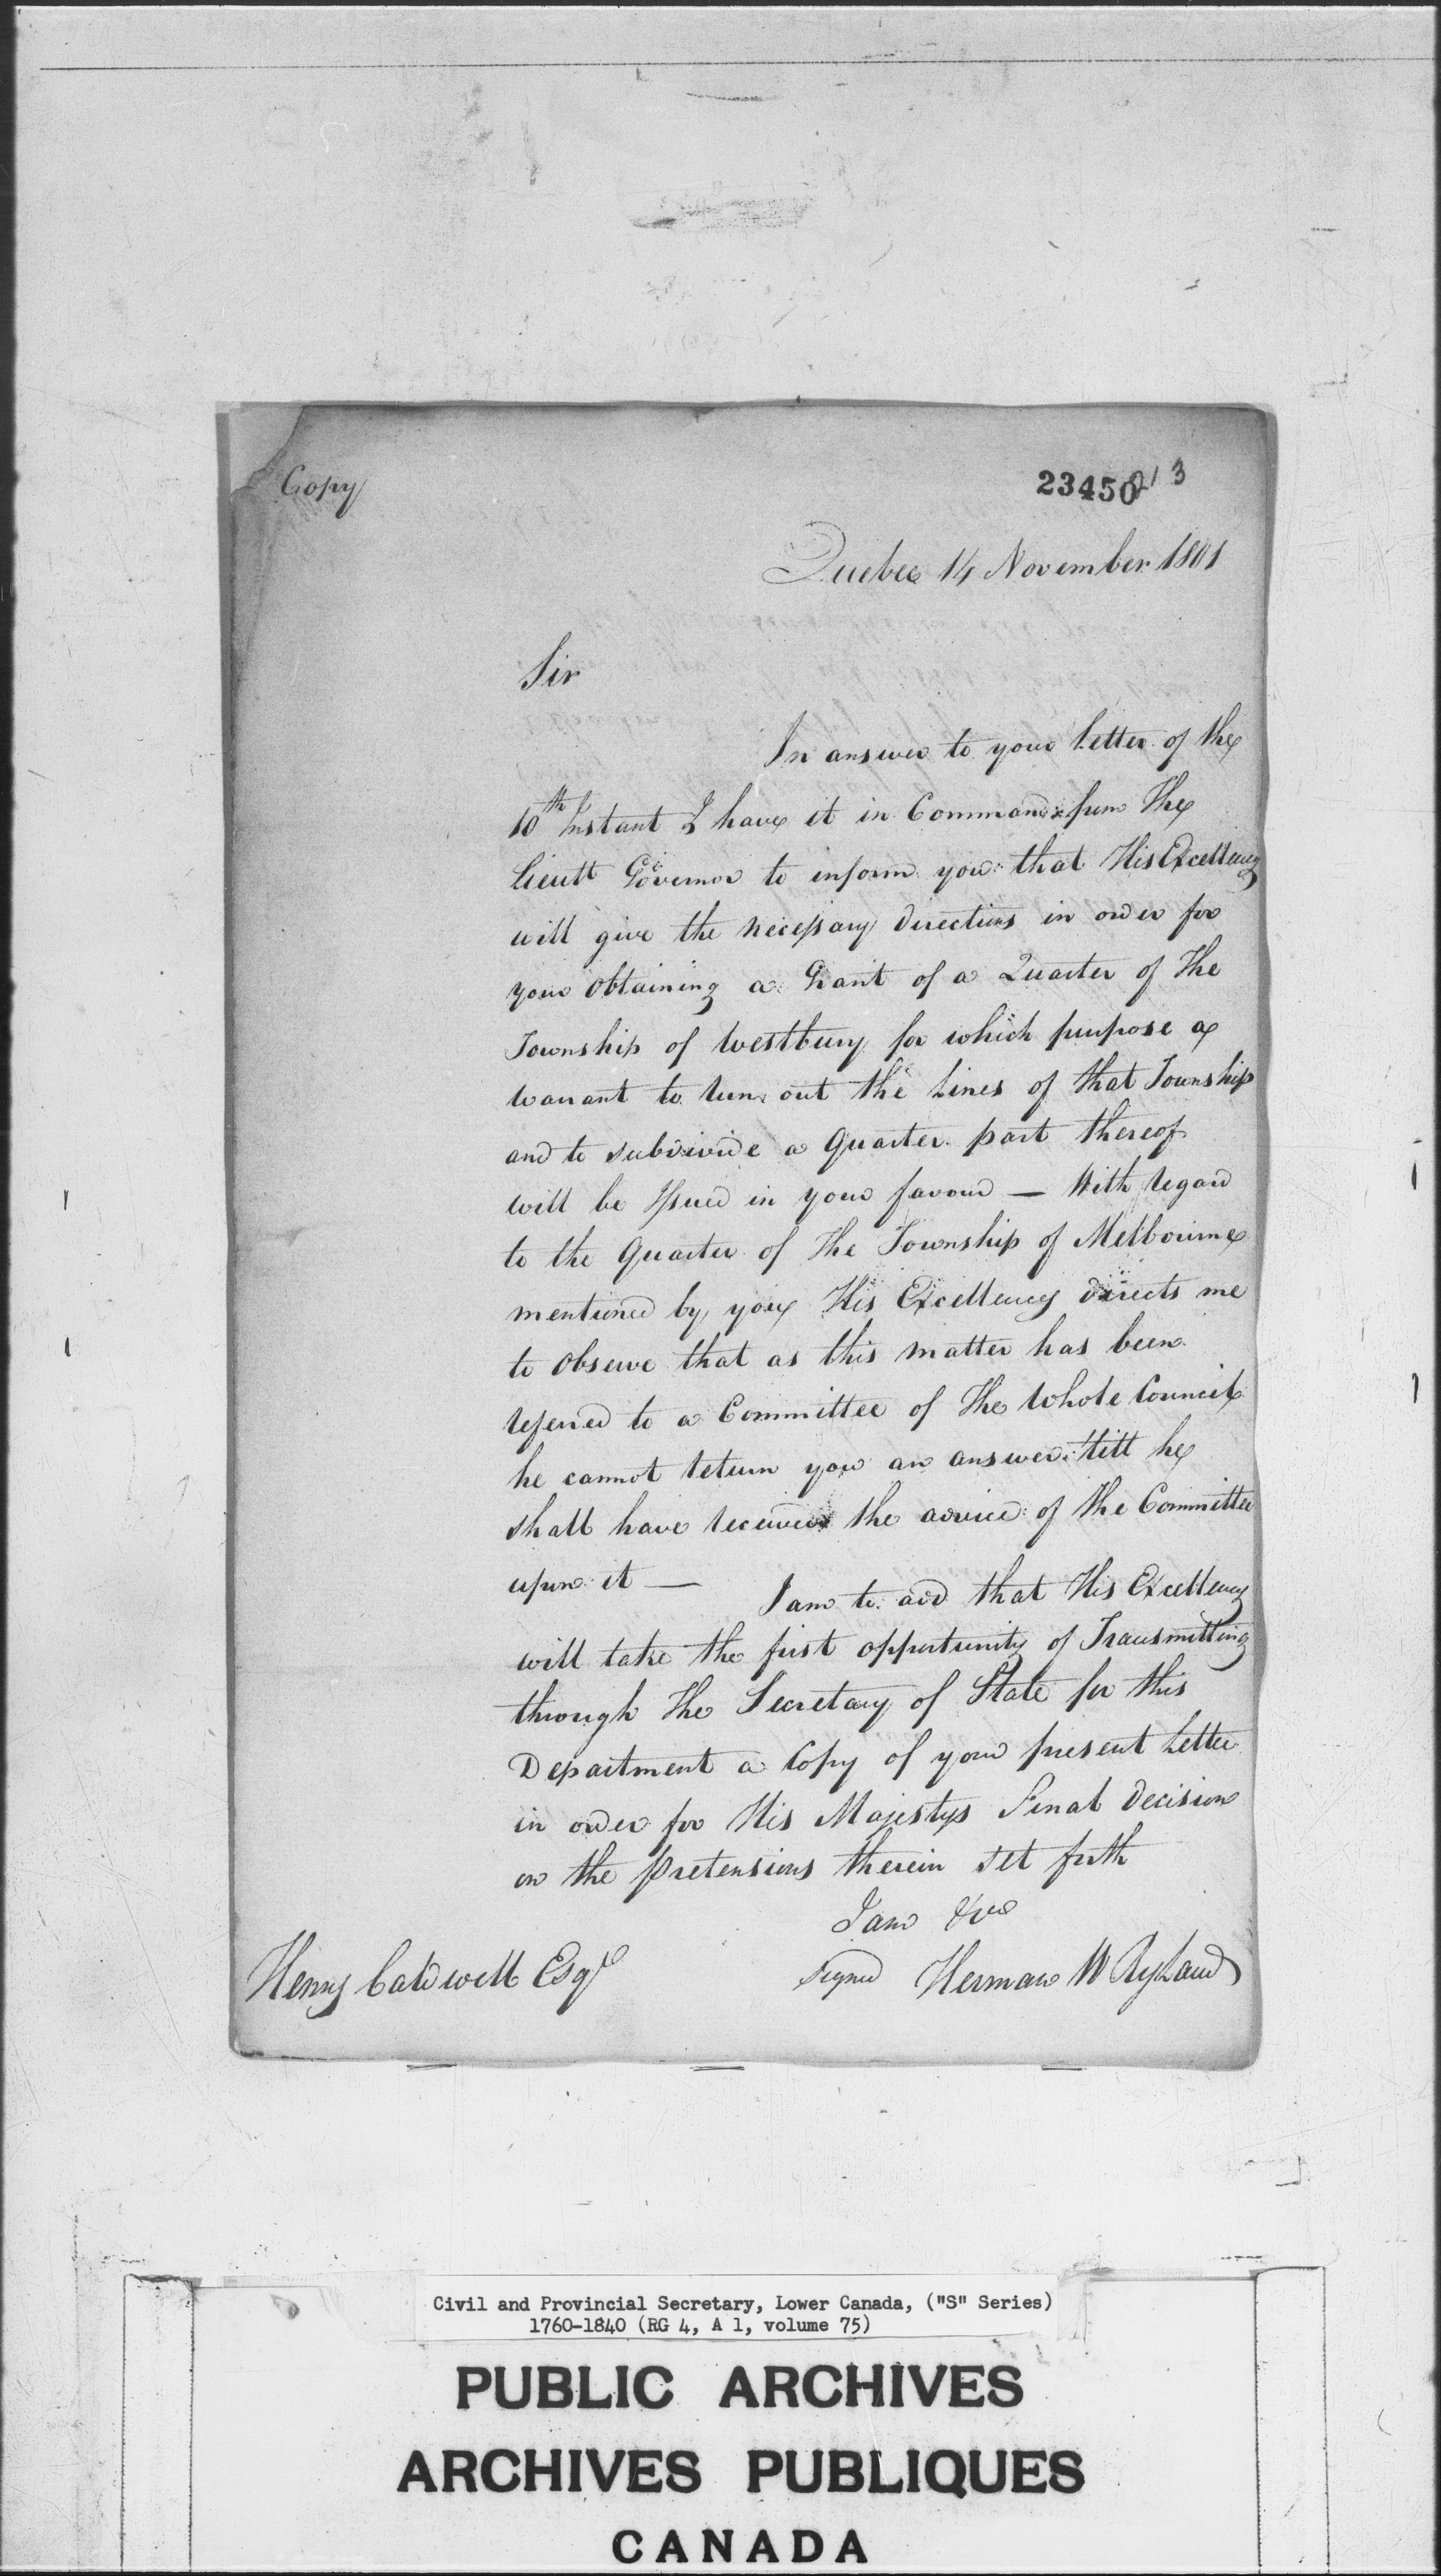 Copy
23450
213
Quebec 14 November 1801
Sir
In answer to your letter of the
10th Instant I have it in Command from The
Lieutt Governor to inform you that His Excellency
will give the necessary directions in order for
your obtaining a Grant of a Quarter of The
Township of Westbury for which purpose a
warrant to run out the Lines of that Township
and to subdivide a Quarter part thereof
will be Issued in your favour — With regard
to the Quarter of The Township of Melbourne
mentioned by you His Excellency directs me
to Observe that as this matter has been
referred to a Committee of The Whole Council
he cannot return you an answer till he
shall have received the advice of the Committee
upon it —
I am to add that His Excellency
will take the first opportunity of Transmitting
through The Secretary of State for this
Department a Copy of your present Letter
in order for His Majestys Final Decision
on the Pretensions therein set forth
I am &ca
signed Herman W Ryland
Henry Caldwell Esqr
Civil and Provincial Secretary, Lower Canada, ("S" Series)
1760-1840 (RG 4, A 1, volume 75)
PUBLIC ARCHIVES
ARCHIVES PUBLIQUES
CANADA